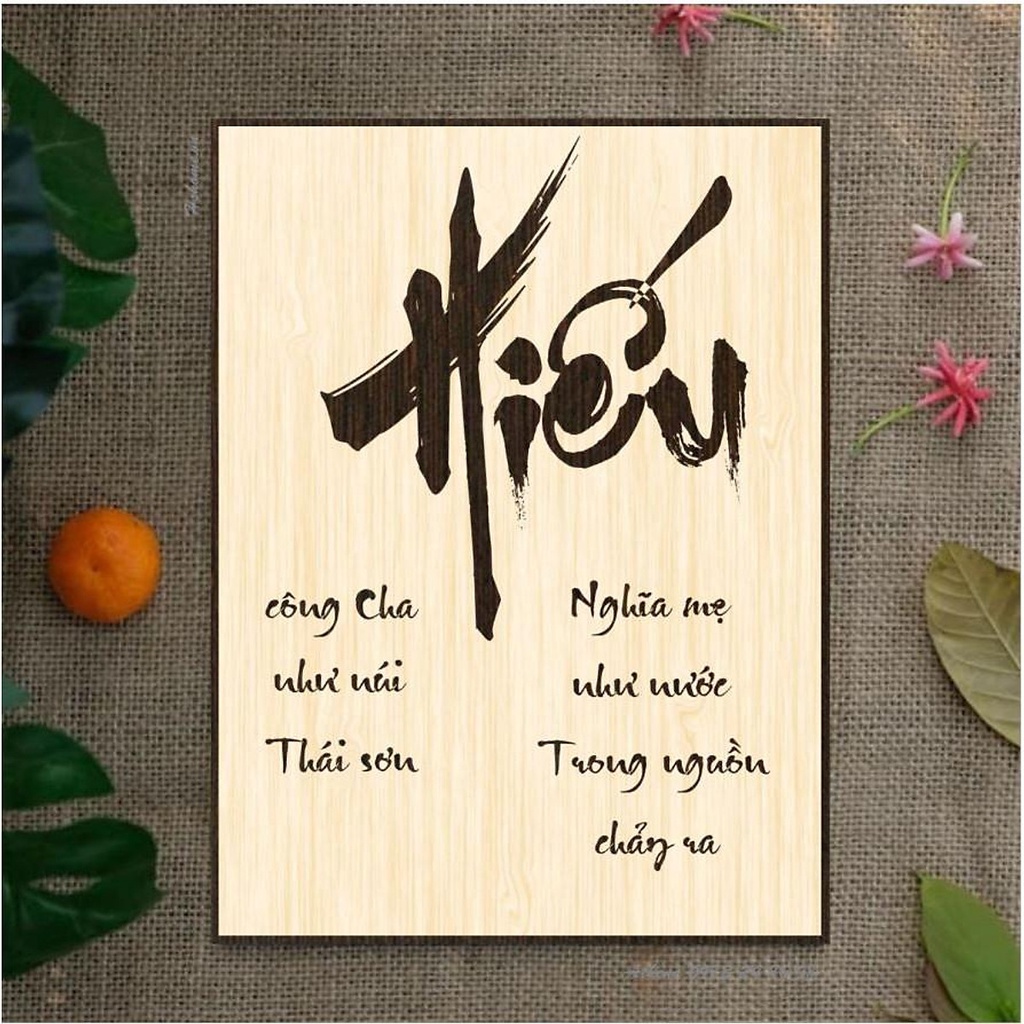 Hiếu
công Cha
như núi
Thái sơn
Nghĩa mẹ
như nước
Trong nguồn
chảy ra